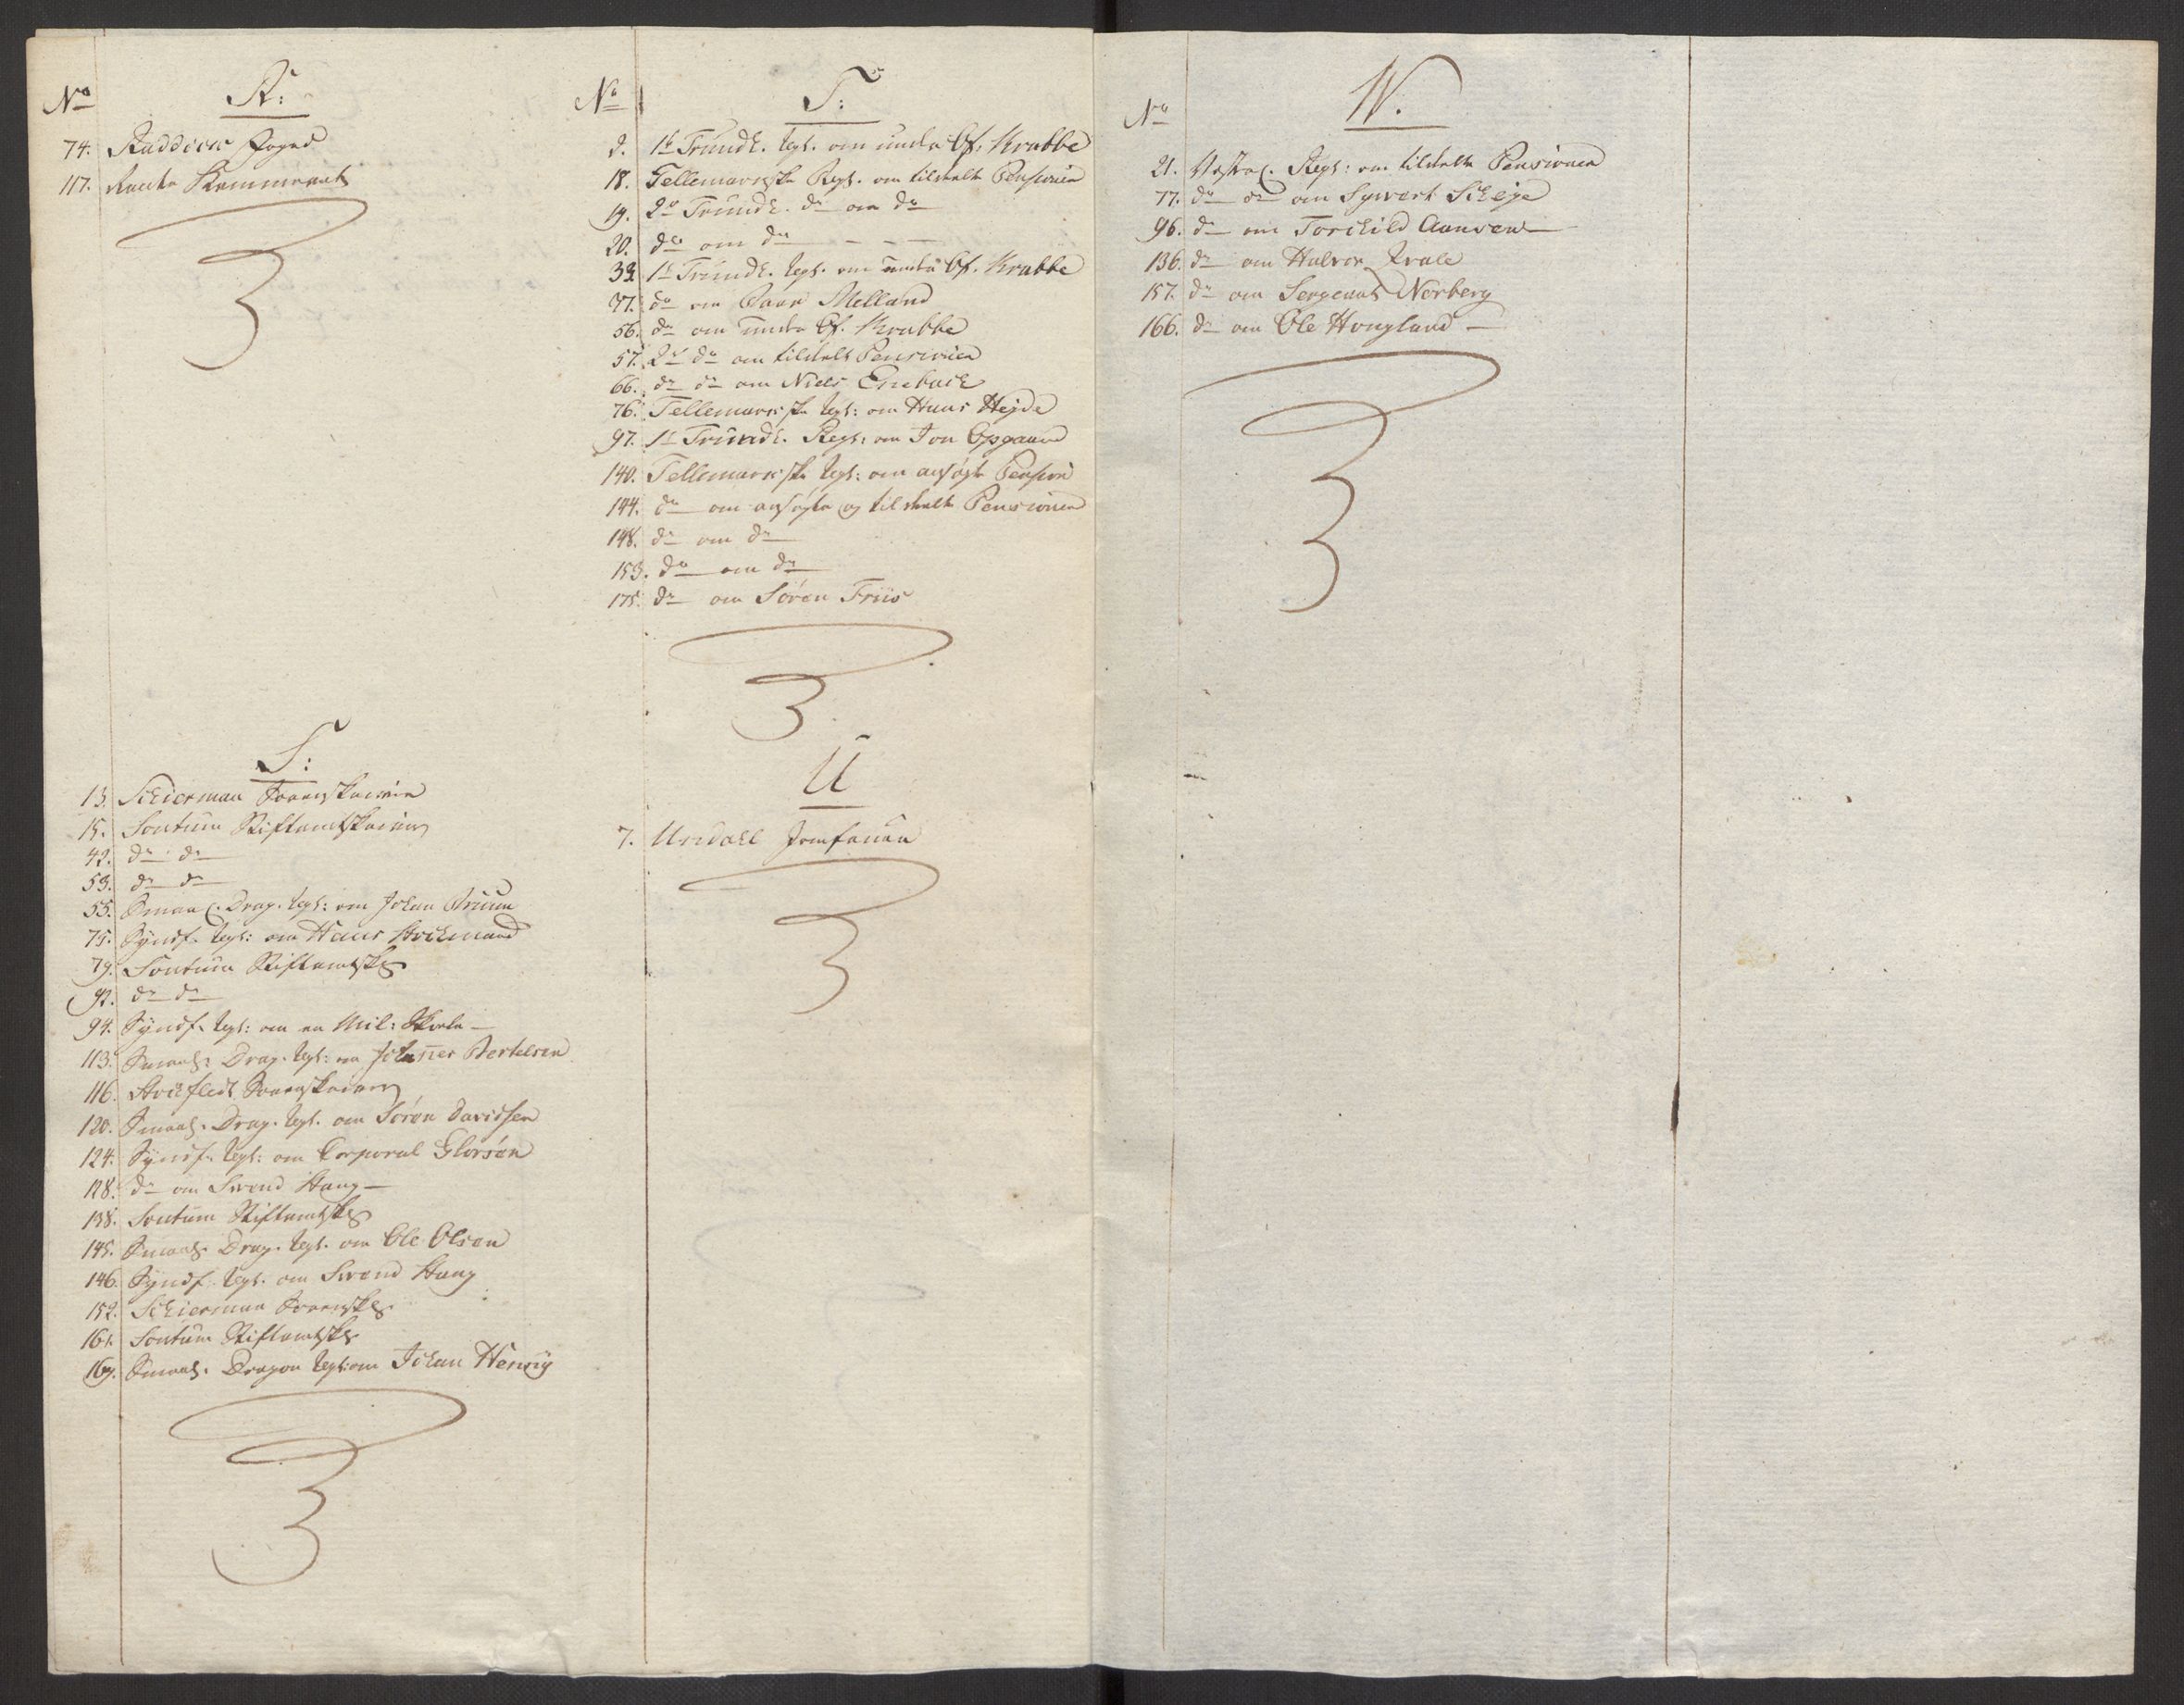 No
R:
74. Raddick Foged
117. Rente Kammeret
S:
13. Schierman Sorenskriver
15. Sontum Stiftamtskriver
42. do do
53. do do
55. Smaal. Drag. Regt: om Johan Bruun
75. Syndf. Regt: om Hans Stockmand
79. Sontum Stiftamtskr
92. do do
94. Syndf. Regt: om en Mil: Skole
113. Smaal: Drag. Regt: om Johannes Bertelsen
116. Stockfledt Sorenskriver
120. Smaal. Drag. Regt. om Sören Davidsen
124. Syndf. Regt: om Corporal Glorsön
128. do om Svend Haug
138. Sontum Stiftamtskr
145. Smaal. Drag. Regt. om Ole Olsen
146. Syndf. Regt. om Svend Haug
152. Schierman Sorenskr
161. Sontum Stiftamtskr
169. Smaal. Dragon Regt: om Johan
No
T:
9. 1te Trundh. Regt. om under Of. Krabbe
18. Tellemarkske Regt. om tildelte Pensioner
19. 2de Trundh. do om do
20. do om do
33. 1te Trundh. Regt. om under Of. Krabbe
37. do om Melland
56. do om under Of. Krabbe
57. 2de do om tildelt Pensioner
66. do do om Niels
76. Tellemarkske Regt: om Hans Hejde
97. 1te Trundh. Regt: om Jon Opgaard
140. Tellemarkske Regt: om ansögt Pension
144. do om ansögte og tildelte Pensioner
148. do om do
153. do om do
175. do om Sören Friis
U
7. Undall Jomfruen
No
W.
21. Vesterl. Regt: om tildelte Pensioner
77. do do om Syvert
96. do om Torchild Aansen
136. do om Halvor Qvale
157. do om Sergeant Norberg
166. do om Ole Hougland